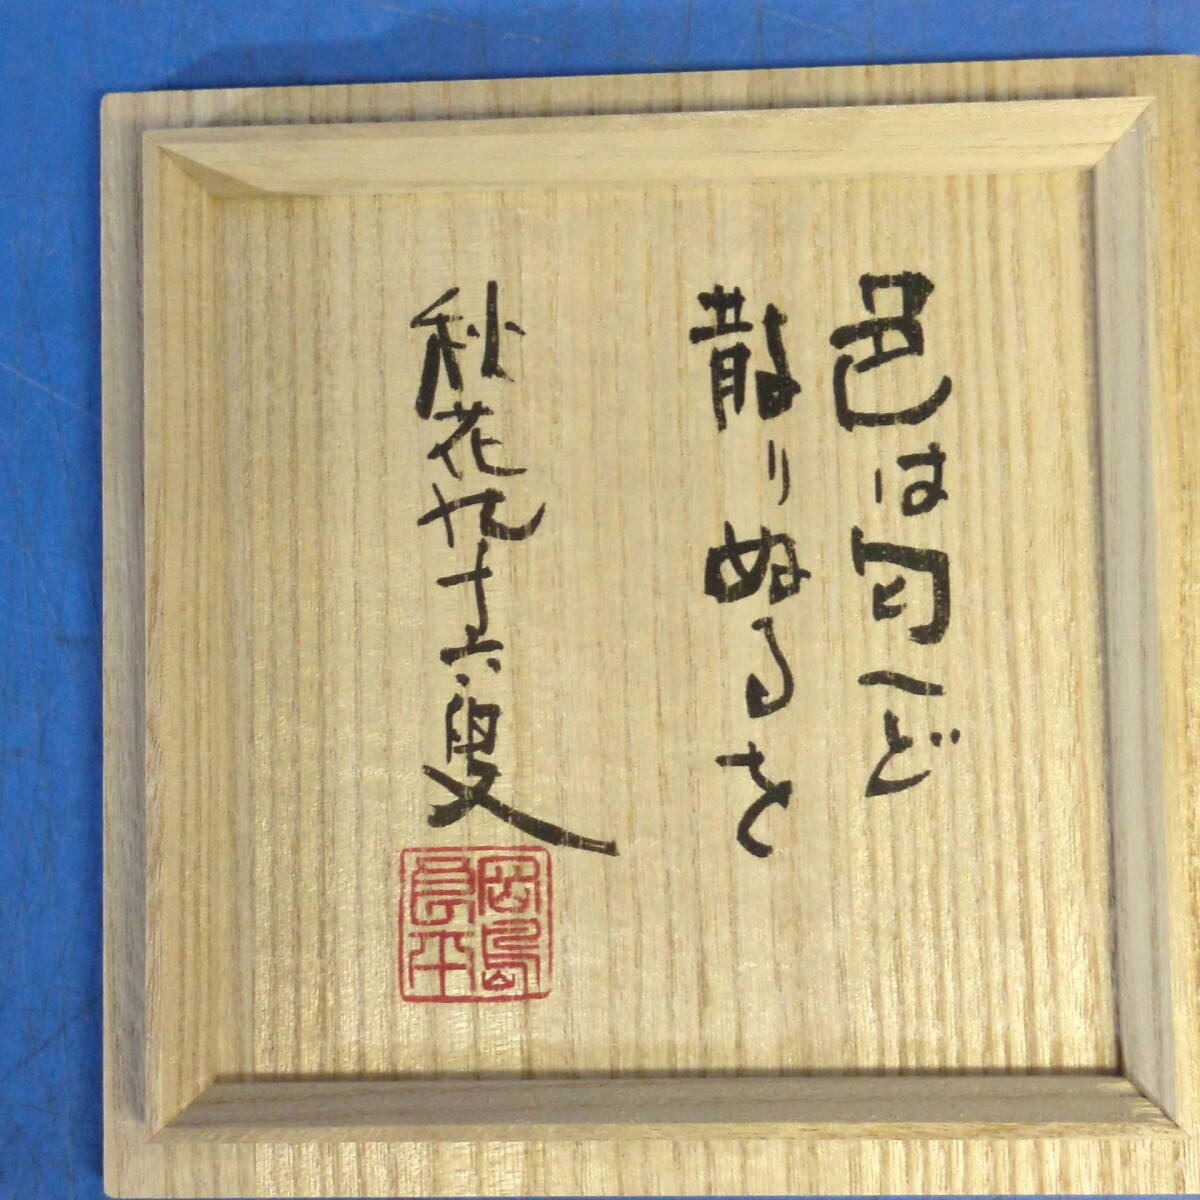 色は匂へど
散りぬるを
秋花九十六叟
岡島良平